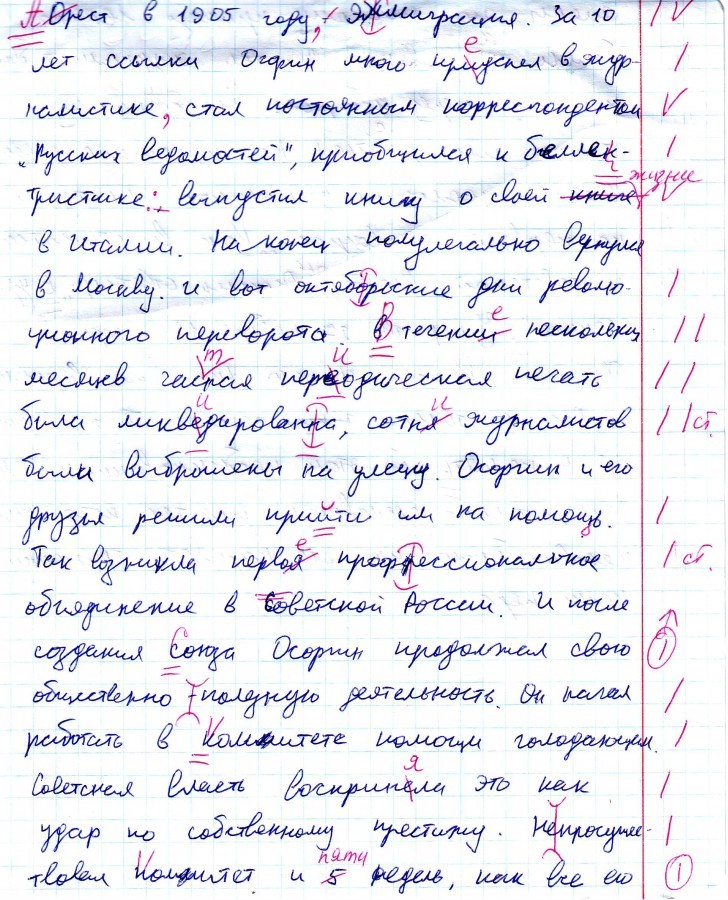 Арест в 1905 году, Эммиграция. За 10 | V
лет ссылки Осоргин много преуспел в жур- |
налистике, стал постоянным корреспондентом V
„Русских ведомостей", приобщился к беллек- |
тристике: выпустил книгу о своей книге жизни V
в Италии. На конец полулегально вернулся
в Москву. И вот октябрьские дни револю- |
ционного переворота. В течении е нескольких | |
месяцев часная т переодическая и печать | |
была ликведированна и, сотня и журналистов | | ст.
были выброшены на улецу. Осоргин и его
друзья решили прийти им на помощь. |
Так возникла первоя е проффессиональное | ст.
объединение в Советской России. И после
создания Союза Осоргин продолжал свою 1
общественно-полезную деятельность. Он начал |
работать в Коммитете помощи голодающим. |
Советская власть воспринела я это как |
удар по собственному престижу. Непросущес- |
твовал Коммитет и 5 пяти недель, как все его 1